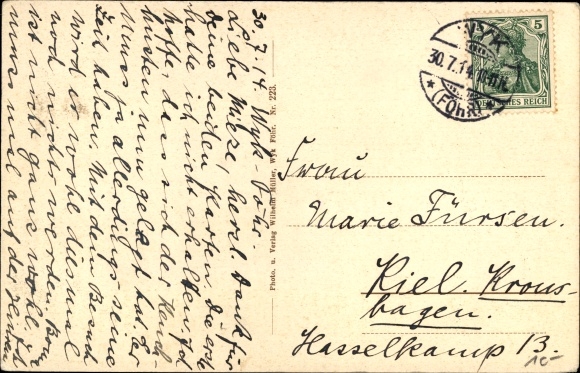 30.7.14. Wyk-Föhr.
Liebe Mieze, herzl. Dank für
Deine beiden Karten, die erste
habe ich nicht erhalten. Ich
hoffe, dass sich der
husten nun gelegt hat. Er
muss ja allerdings seine
Zeit haben. Mit dem Besuch
wird es wohl diesmal
noch nichts werden.
ist nicht ganz wohl,
muss mal auf der
Photo. u. Verlag Wilhelm Müller, Wyk Föhr. Nr. 223.
WYK
30.7.14
* (FÖHR) *
5
DEUTSCHES REICH
Frau
Marie Fürsen.
Kiel. Krons-
hagen.
Hasselkamp 13.